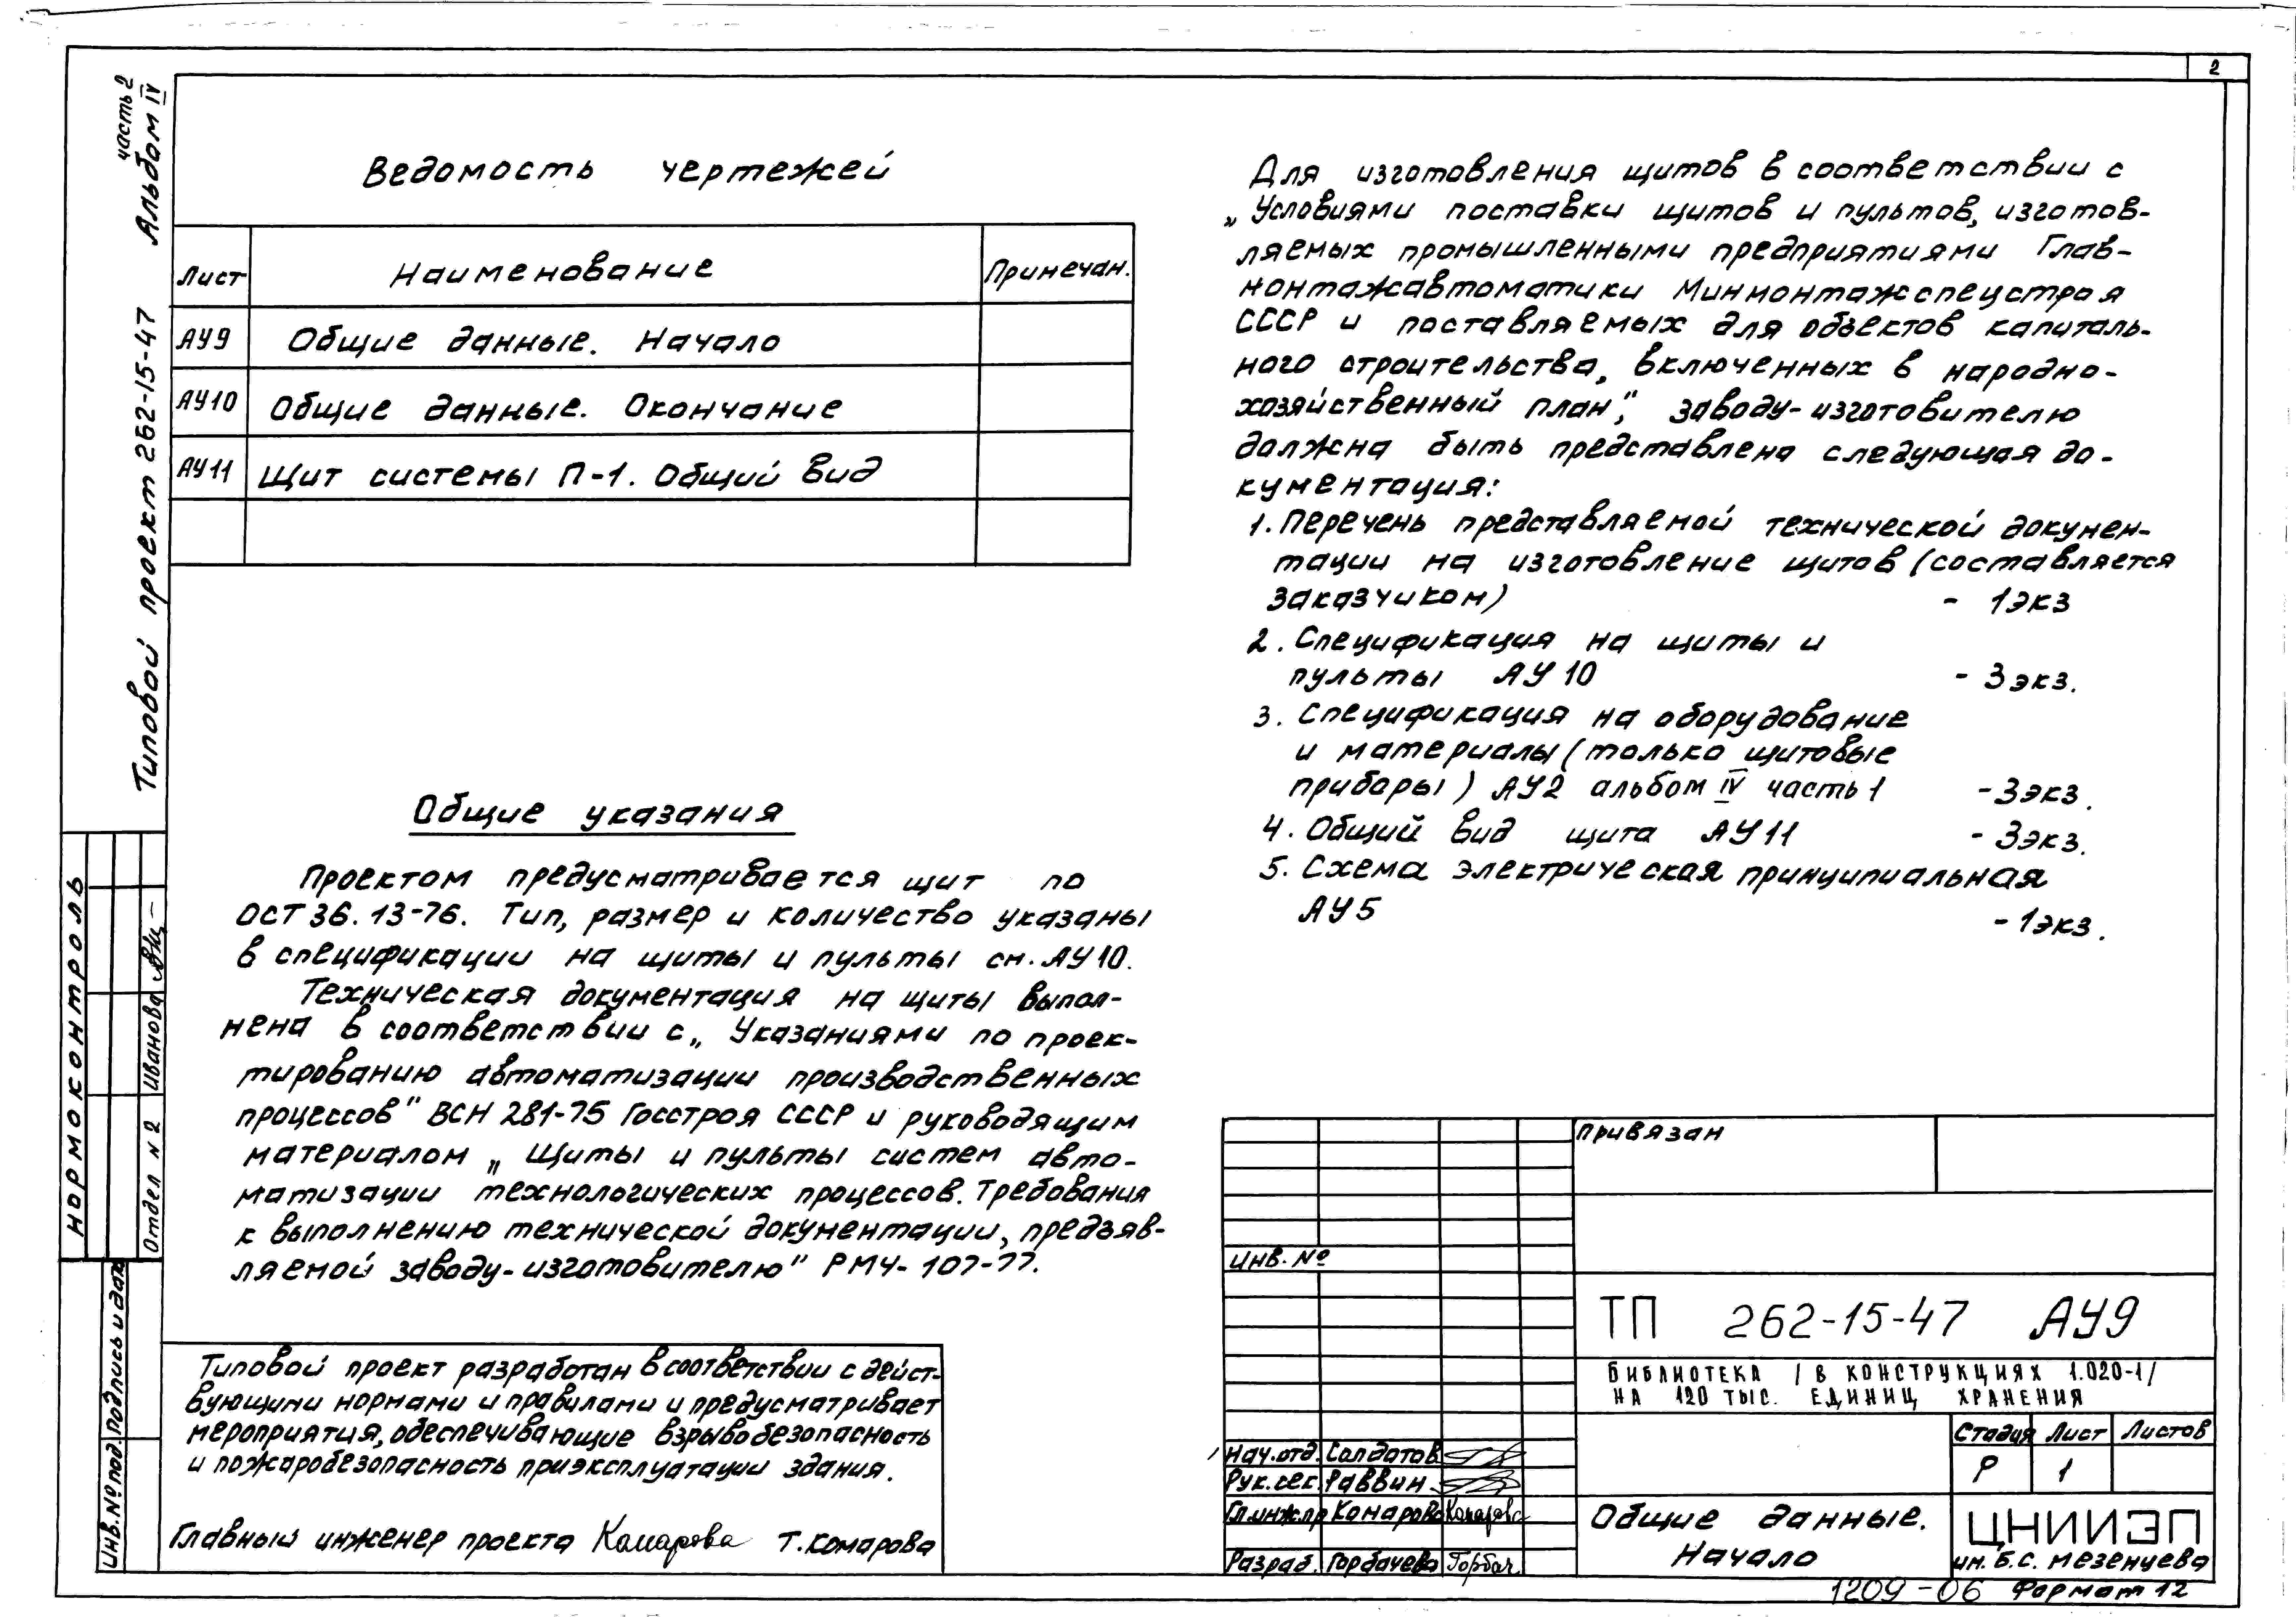 2
часть 2
Типовой проект 262-15-47 Альбом IV
Ведомость чертежей
Лист Наименование Примечан.
АУ9 Общие данные. Начало
АУ10 Общие данные. Окончание
АУ11 Щит системы П-1. Общий вид
Общие указания
Проектом предусматривается щит по
ОСТ 36.13-76. Тип, размер и количество указаны
в спецификации на щиты и пульты см. АУ10.
Техническая документация на щиты выпол-
нена в соответствии с „Указаниями по проек-
тированию автоматизации производственных
процессов" ВСН 281-75 Госстроя СССР и руководящим
материалом „Щиты и пульты систем авто-
матизации технологических процессов. Требования
к выполнению технической документации, предъяв-
ляемой заводу-изготовителю" РМ4-107-77.
Типовой проект разработан в соответствии с дейст-
вующими нормами и правилами и предусматривает
мероприятия, обеспечивающие взрывобезопасность
и пожаробезопасность при эксплуатации здания.
Главный инженер проекта Комарова Т. Комарова
Для изготовления щитов в соответствии с
„Условиями поставки щитов и пультов, изготов-
ляемых промышленными предприятиями Глав-
монтажавтоматики Минмонтажспецстроя
СССР и поставляемых для объектов капиталь-
ного строительства, включенных в народно-
хозяйственный план", заводу-изготовителю
должна быть представлена следующая до-
кументация:
1. Перечень представляемой технической докумен-
тации на изготовление щитов (составляется
заказчиком) - 1экз
2. Спецификация на щиты и
пульты АУ10 - 3экз.
3. Спецификация на оборудование
и материалы (только щитовые
приборы) АУ2 альбом IV часть 1 - 3экз.
4. Общий вид щита АУ11 - 3экз.
5. Схема электрическая принципиальная
АУ5 - 1экз.
Нормоконтроль
Отдел N 2 Иванова
Инв. № под. Подпись и дат
Привязан
Инв. №
ТП 262-15-47 АУ9
БИБЛИОТЕКА /В КОНСТРУКЦИЯХ 1.020-1/
НА 120 ТЫС. ЕДИНИЦ ХРАНЕНИЯ
Стадия Лист Листов
Р 1
Нач.отд. Солдатов
Рук.сек. Раввин
Гл.инж.пр Комарова Комарова
Разраб. Горбачева Горбач
Общие данные.
Начало
ЦНИИЭП
им. Б.С. Мезенцева
1209-06 Формат 12